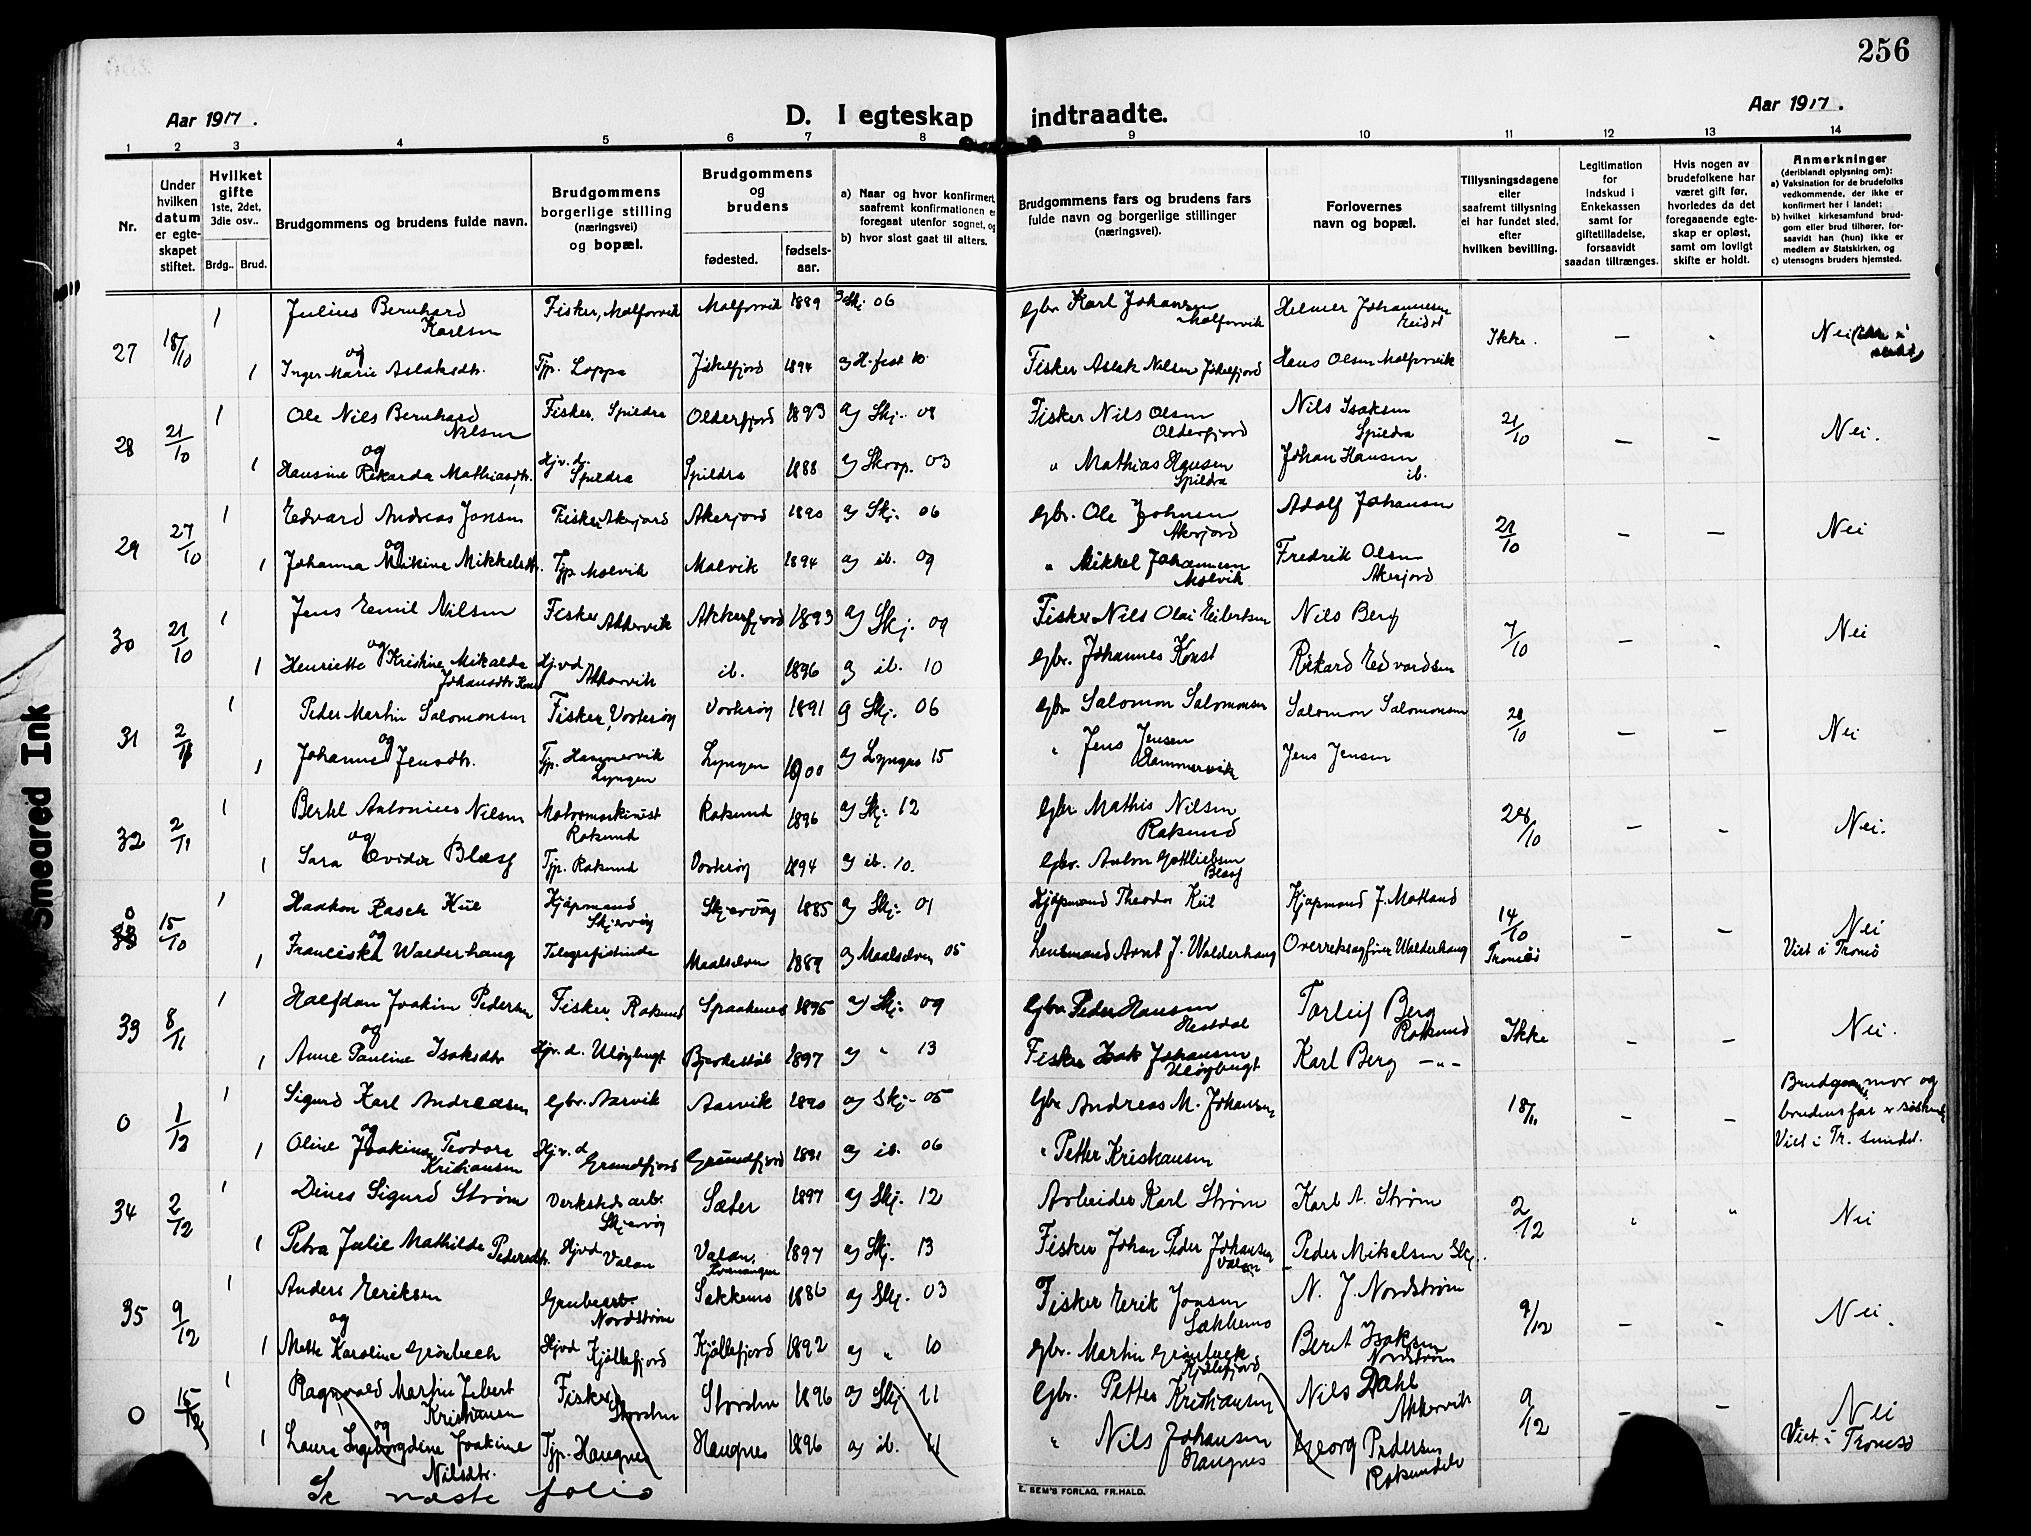 256
Aar 1917.
D. I egteskap indtraadte.
Aar 1917.
1 2 3 4 5 6 7 8 9 10 11 12 13 14
Nr.
Under hvilken datum er egteskapet stiftet.
Hvilket gifte 1ste, 2det, 3die osv..
Brdg.. Brud.
Brudgommens og brudens fulde navn.
Brudgommens borgerlige stilling (næringsvei) og bopæl.
Brudgommens og brudens
fødested. fødselsaar.
a) Naar og hvor konfirmert, saafremt konfirmationen er foregaat utenfor sognet, og
b) hvor sidst gaat til alters.
Brudgommens fars og brudens fars fulde navn og borgerlige stillinger (næringsvei).
Forlovernes navn og bopæl.
Tillysningsdagene eller saafremt tillysning ei har fundet sted, efter hvilken bevilling.
Legitimation for Indskud i Enkekassen samt for giftetilladelse, forsaavidt saadan tiltrænges.
Hvis nogen av brudefolkene har været gift før, hvorledes da det foregaaende egteskap er opløst, samt om lovligt skifte er holdt.
Anmerkninger (deriblandt oplysning om):
a) Vaksination for de brudefolks vedkommende, der ikke er konfirmert her i landet;
b) hvilket kirkesamfund brudgom eller brud tilhører, forsaavidt han (hun) ikke er medlem av Statskirken, og
c) utensogns bruders hjemsted.
27 18/10 1 Julius Bernhard Karlsen Fisker, Malfarvik Malfarvik 1889 Skj. 06 Gbr Karl Johansen Malfarvik Helmer Johannesen Ikke. — Nei
og
1 Inger Marie Aslaksdtr. Tjp. Loppa Jøkelfjord 1894 a) H.fest 10 Fisker Aslak Nilsen Jøkelfjord Hans Olsen Malfarvik
28 21/10 1 Ole Nils Bernhard Nilsen Fisker, Spildra Olderfjord 1893 a) Skj. 08 Fisker Nils Olsen Olderfjord Nils Isaksen Spildra 21/10 — — Nei.
og
1 Hansine Rikarda Mathiasdtr. Hjv.d. Spildra Spildra 1888 a) Skorp. 03 " Mathias Hansen Spildra Johan Hansen ib.
29 27/10 1 Edvard Andreas Jonsen Fisker Akerjord Akerjord 1890 a) Skj. 06 Gbr. Ole Johnsen Akerjord Adolf Johansen 21/10 — — Nei
og
1 Johanna Mikkelsdtr. Tjp Molvik Molvik 1894 a) ib. 09 " Mikkel Johannesen Molvik Fredrik Olsen Akerjord
30 21/10 1 Jens Emil Nilsen Fisker Akkarvik Akkarfjord 1893 a) Skj. 09 Fisker Nils Olai Eilertsen Nils Berg 7/10 — Nei
og
1 Henriette Kristine Mikalda Johansdtr Hjvd Akkarvik ib. 1896 a) ib. 10 Gbr. Johannes Konst Rikard Edvardsen
31 2/11 1 Peder Martin Salomonsen Fisker, Vorterøy Vorterøy 1891 a) Skj. 06 Gbr Salomon Salomonsen Salomon Salomonsen 28/10 — — Nei
og
1 Johanne Jensdtr. Tjp. Hammervik Lyngen Lyngen 1900 a) Lyngen 15 " Jens Jensen Hammervik Jens Jensen
32 2/11 1 Bertel Antonius Nilsen Motormaskinist Rotsund Rotsund 1896 a) Skj. 12 Gbr Mathis Nilsen Rotsund 28/10 — — Nei.
og
1 Sara Evida Blæsg Tjp. Rotsund Vorterøy 1894 a) ib. 10. Gbr. Anton Gottliebsen Blæsg
0 15/10 1 Haakon Rasch Kiil Kjøpmand Skjervøy Skjervøy 1885 a) Skj. 01 Kjøpmand Theodor Kiil Kjøpmand J. Motland 14/10 Tromsø — — Nei
og
1 Franciska Walderhaug Telegrafistinde Maalselven 1889 a) Maalselven 05 Lensmand Arnt J. Walderhaug Overretssagfører Walderhaug Viet i Tromsø
33 8/11 1 Halfdan Joakim Pedersen Fisker, Rotsund Spaakenes 1895 a) Skj. 09 Gbr Peder Hansen Torleif Berg Rotsund Ikke — — Nei.
og
1 Anne Pauline Isaksdtr Hjv.d. Uløybugt 1897 a) " 13 Fisker Isak Johansen Uløybugt Karl Berg —"—
0 1/12 1 Sigurd Karl Andreasen Gbr. Aarvik Aarvik 1890 a) Skj. 05 Gbr Andreas M. Johansen 18/11 — — Brudgommens mor og brudens far er søskende
og
1 Oline Joakine Teodora Kristiansen Hjv.d Grundfjord Grundfjord 1891 a) ib. 06 " Petter Kristiansen Viet i Tr. sundet.
34 2/12 1 Dines Sigurd Strøm Verksted arb. Skjervøy Sæter 1897 a) Skj. 12 Arbeider Karl Strøm Karl A. Strøm 2/12 " " Nei
1 Petra Julie Mathilde Pedersdtr. Hjvd Valan Valan, Kvænangen 1897 a) Skj. 13 Fisker Johan Peder Johansen Valan Peder Mikalsen Skj.
35 9/12 1 Anders Eriksen Grubearb. Nordstrøm Sakkemo 1886 a) Skj. 03 Fisker Erik Jonsen Sakkemo N. J. Nordstrøm 9/12 — — Nei.
og
1 Mette Karoline Grønbech Hjvd Kjøllefjord Kjøllefjord 1892 a) " 10 Gbr. Martin Grønbeck Kjøllefjord Berit Isaksen Nordstrøm
0 15/12 1 Ragnvald Martin Jebert Kristiansen Fisker Storslen Storslen 1896 a) Skj 11 Gbr. Petter Kristiansen Nils Dahl Akkarvik 9/12 — — Nei
og
1 Laura Ingeborgdine Joakine Nilsdtr. Tjp. Haugnes Haugnes 1896 a) ib. 11 " Nils Johansen Haugnes Georg Pedersen Rotsundelv Viet i Tromsø
Se næste folio
E. SEM'S FORLAG, FR.HALD.
Smeared Ink